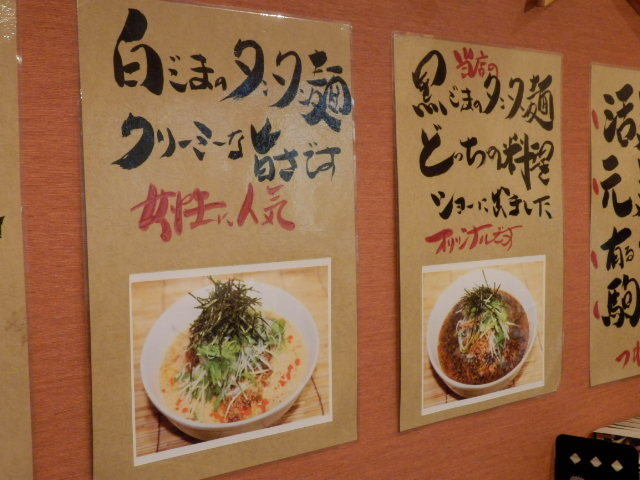 白ごまのタンタン麺
クリーミーな旨さです
女性に人気
当店の
黒ごまのタンタン麺
どっちの料理
ショーに出ました
オリジナルです
活
元
有る
駒